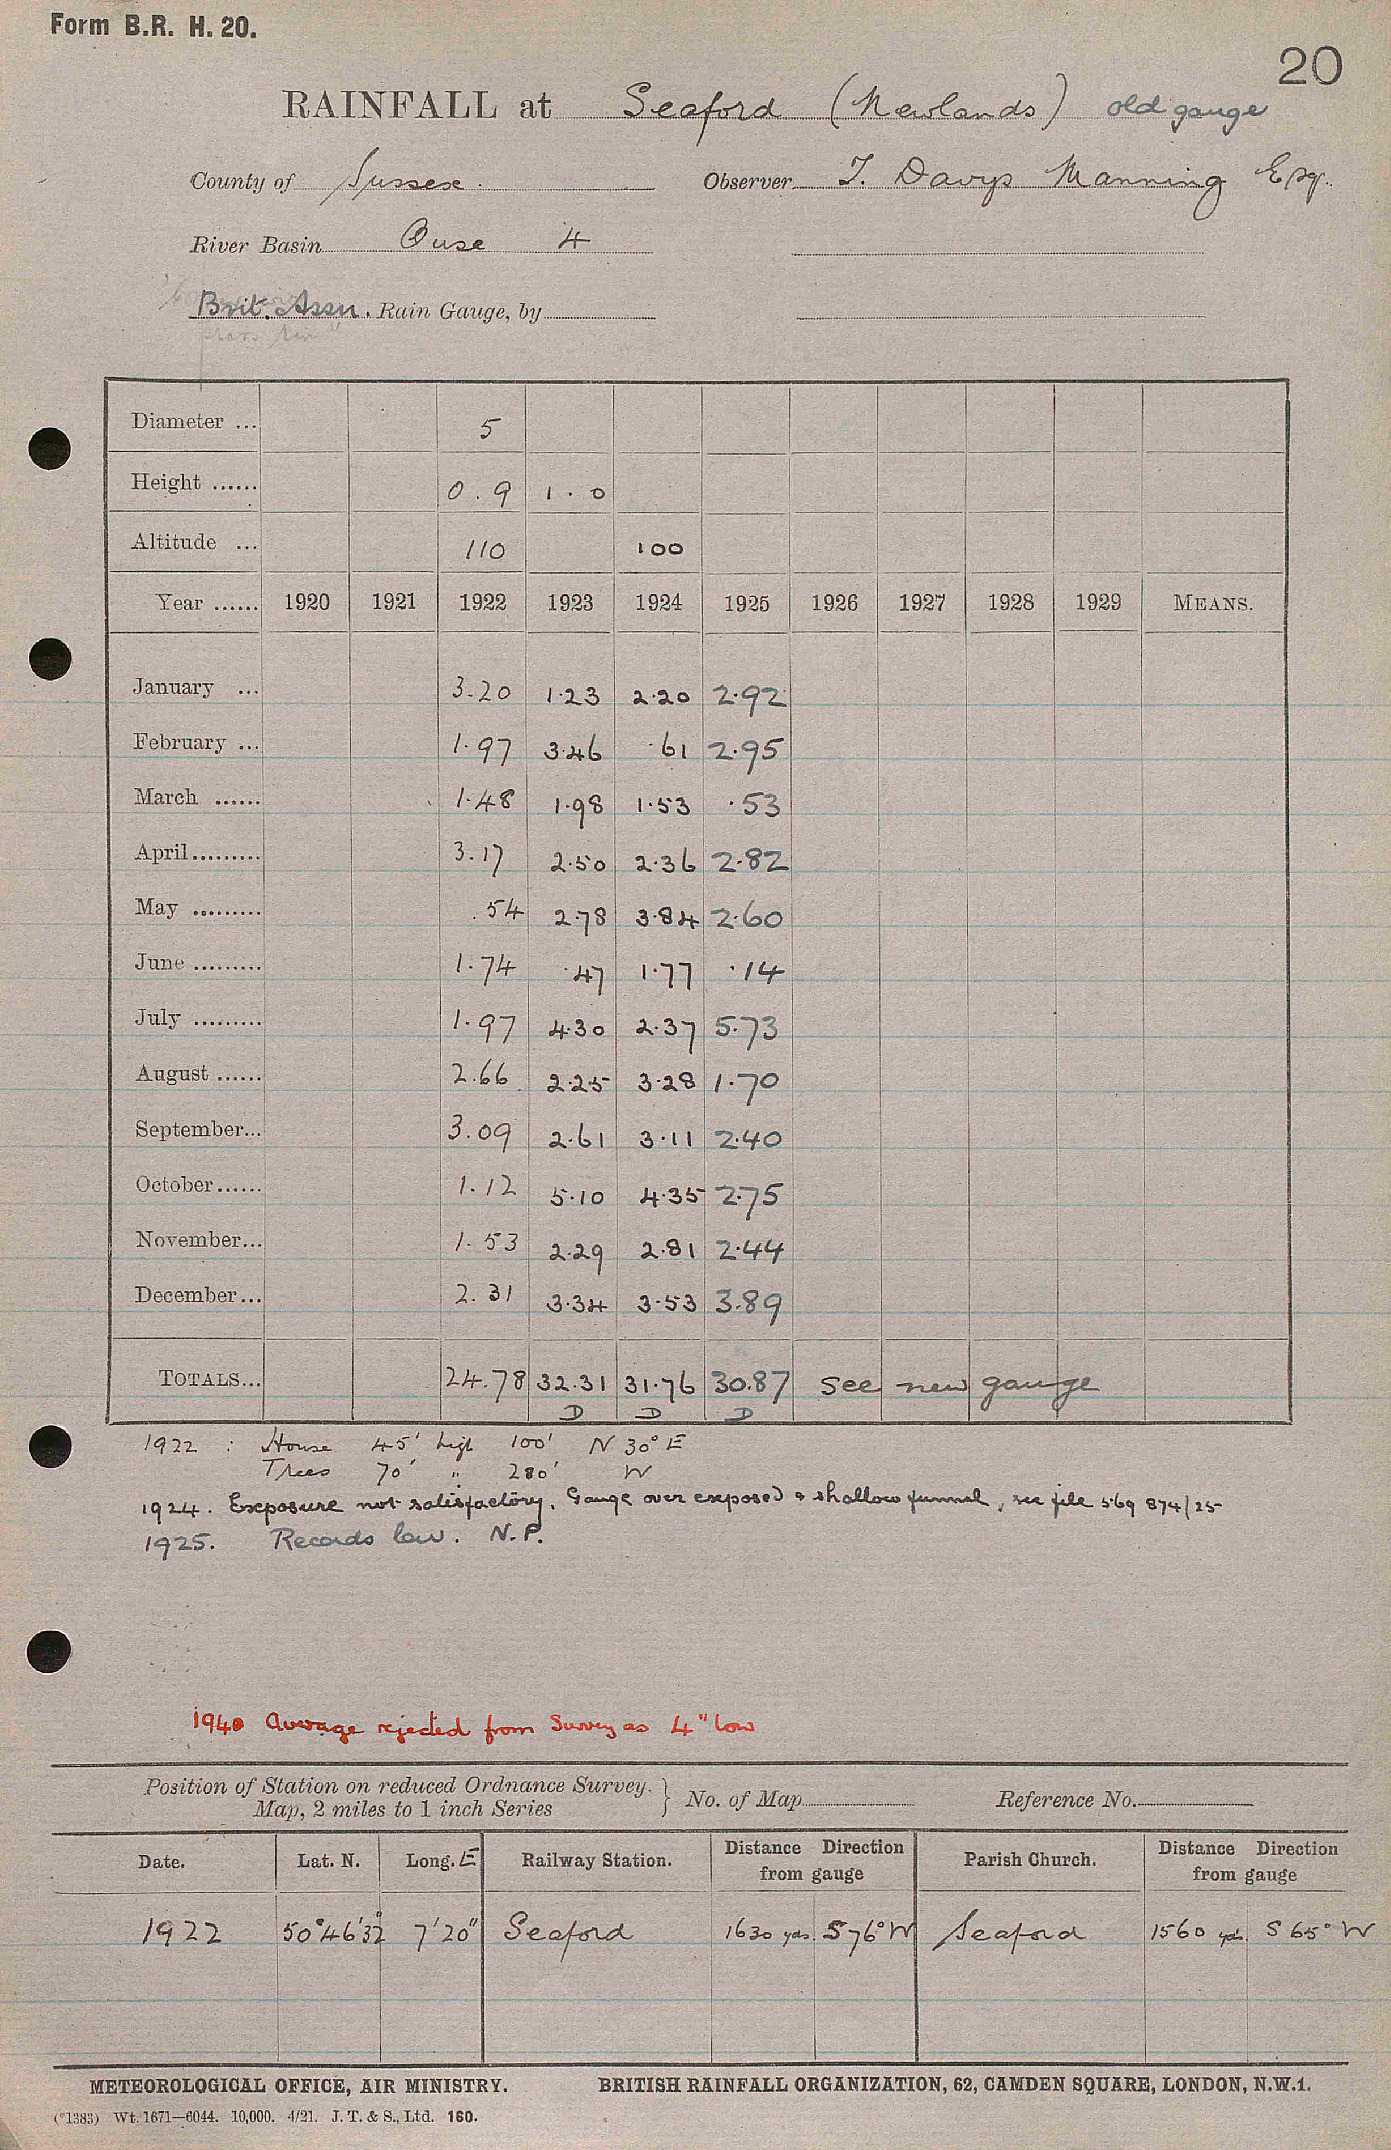 Form B.R. H. 20.
20
RAINFALL at Seaford (Newlands) old gauge
County of Sussex. Observer T. Davys Manning Esq.
River Basin Ouse 4
Brit. Assn. Rain Gauge, by
Diameter ... 5
Height ...... 0.9 1.0
Altitude ... 110 100
Year ...... 1920 1921 1922 1923 1924 1925 1926 1927 1928 1929 MEANS.
January ... 3.20 1.23 2.20 2.92
February ... 1.97 3.46 .61 2.95
March ...... 1.48 1.98 1.53 .53
April......... 3.17 2.50 2.36 2.82
May ......... .54 2.78 3.84 2.60
June ......... 1.74 .47 1.77 .14
July ......... 1.97 4.30 2.37 5.73
August ...... 2.66 2.25 3.28 1.70
September... 3.09 2.61 3.11 2.40
October...... 1.12 5.10 4.35 2.75
November... 1.53 2.29 2.81 2.44
December... 2.31 3.34 3.53 3.89
TOTALS... 24.78 32.31 31.76 30.87 see new gauge
D D D
1922 : House 45' high 100' N 30° E
Trees 70' " 280' W
1924. Exposure not satisfactory. Gauge over exposed & shallow funnel, see file 569 874/25
1925. Records low. N.P.
1940 Average rejected from Survey as 4" low
Position of Station on reduced Ordnance Survey. } No. of Map Reference No.
Map, 2 miles to 1 inch Series
Date. Lat. N. Long. E Railway Station. Distance Direction from gauge Parish Church. Distance Direction from gauge
1922 50°46'32" 7'20" Seaford 1630 yds. S 76° W Seaford 1560 yds. S 65° W
METEOROLOGICAL OFFICE, AIR MINISTRY. BRITISH RAINFALL ORGANIZATION, 62, CAMDEN SQUARE, LONDON, N.W.1.
(*1383) Wt. 1671—6044. 10,000. 4/21. J. T. & S., Ltd. 160.